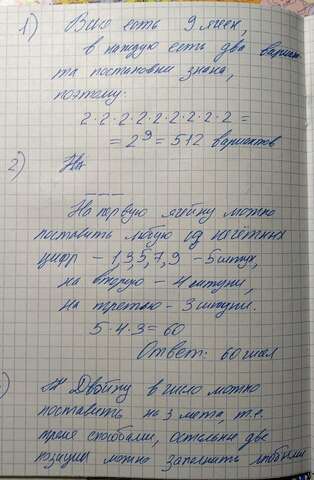 1) Всего есть 9 ячеек,
в каждую есть два вариан-
та постановки знака,
поэтому.
2·2·2·2·2·2·2·2·2 =
= 2⁹ = 512 вариантов
2) На
На первую ячейку можно
поставить любую из нечётных
цифр – 1,3,5,7,9 – 5 штук,
на вторую – 4 штуки,
на третью – 3 штуки.
5·4·3 = 60
Ответ: 60 чисел
) Двойку в число можно
поставить на 3 места, т.е.
тремя способами, остальные две
позиции можно заполнить любыми